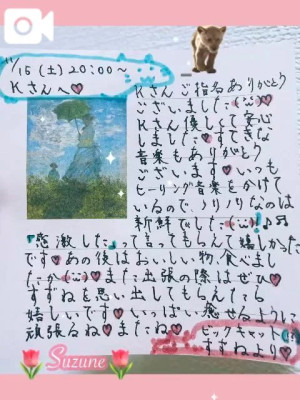 11/15(土)20:00〜
Kさんへ♡
Kさんご指名ありがとう
ございました(¨̮)♡
Kさん優しくて安心
しました♡すてきな
音楽もありがとう
ございます♡いつも
ヒーリング音楽をかけて
いるので、ノリノリなのは
新鮮でした(¨̮)!♪♫
「感激した」って言ってもらえて嬉しかった
です♡あの後はおいしい物食べまし
たか(¨̮)♡また出張の際はぜひ♡
すずねを思い出してもらえたら
嬉しいです♡いっぱい癒せるように
頑張るね♡またね♡
ピンクキャット
すずねより♡
Suzune